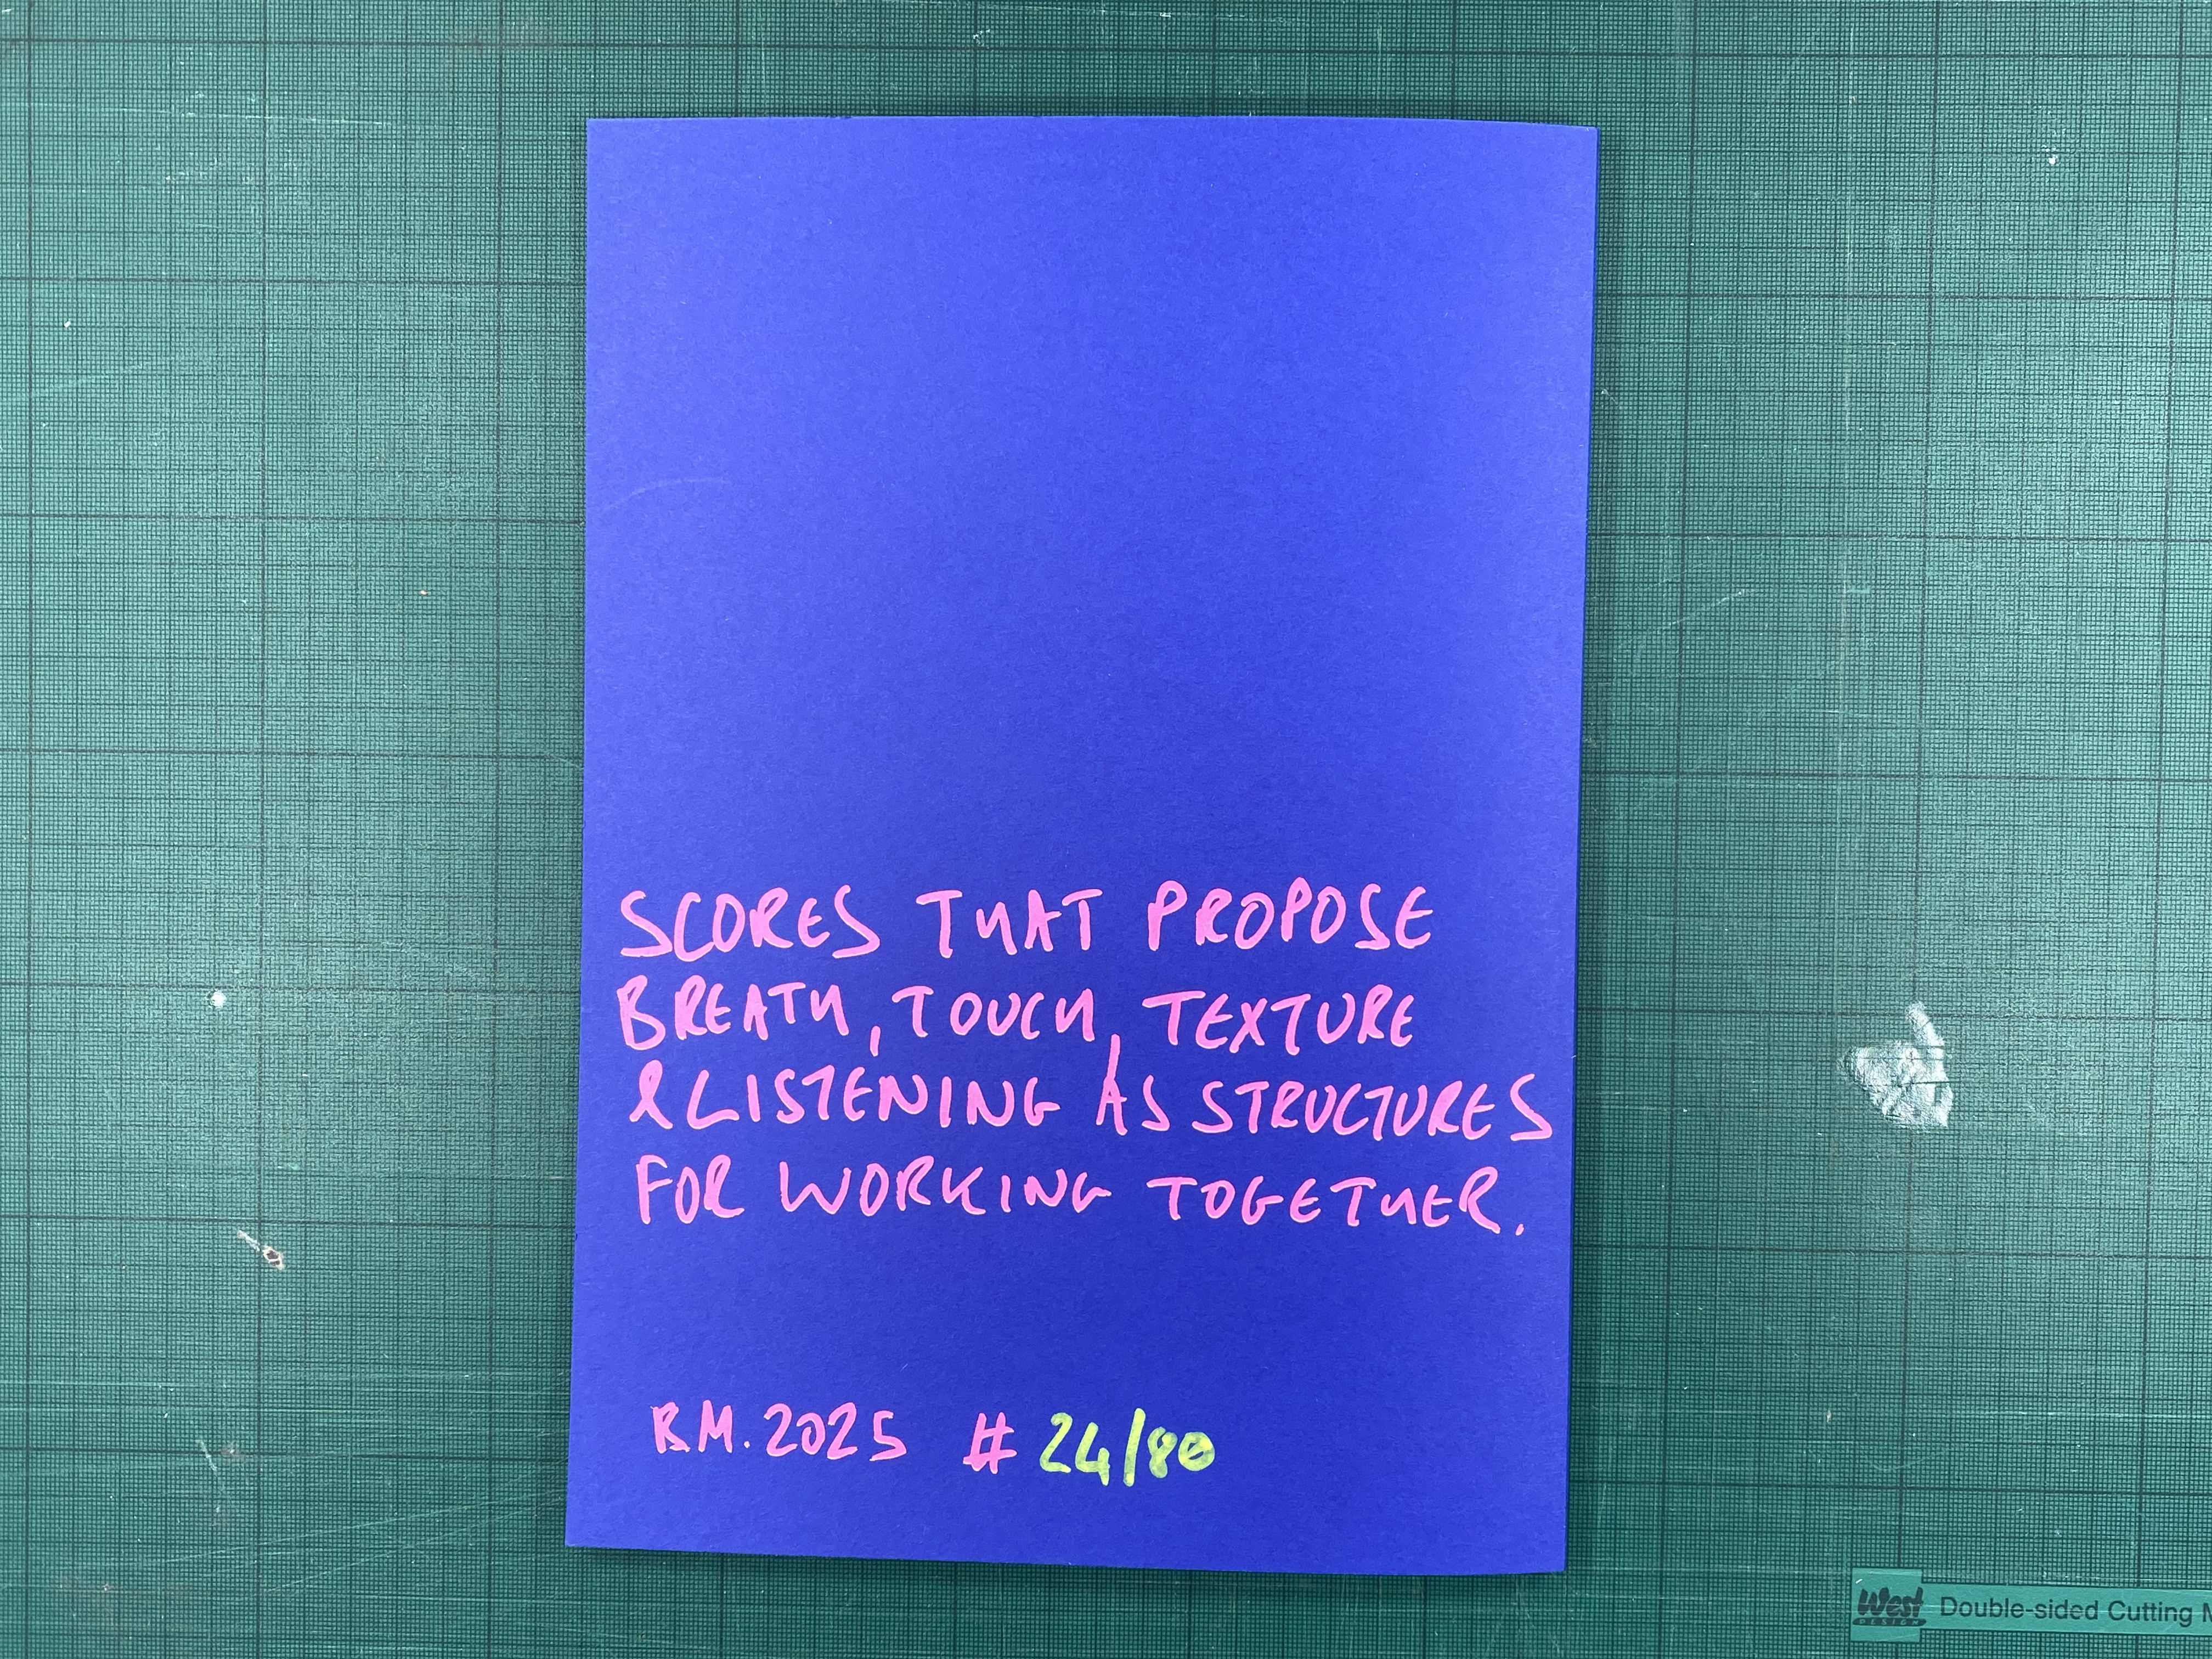 SCORES THAT PROPOSE
BREATH, TOUCH, TEXTURE
& LISTENING AS STRUCTURES
FOR WORKING TOGETHER.
RM. 2025 # 24/80
West
DESIGN
Double-sided Cutting